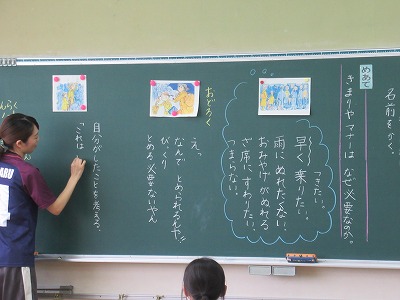 名前をかく。
めあて
きまりやマナーは なぜ必要なのか。
つきたい。
早く乗りたい。
雨にぬれたくない。
おみやげがぬれる。
ざ席にすわりたい。
つまらない。
おどろく
えっ
なんで とめられるんや!!
びっくり
とめる必要ないやん
自分がしたことを考える。
「これは